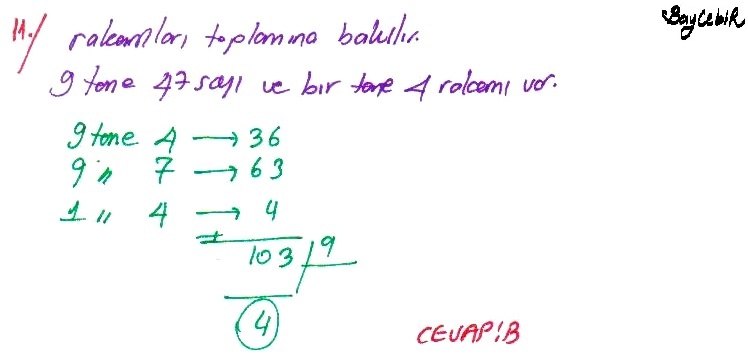 BayCebir
11./ rakamları toplamına bakılır.
9 tane 47 sayı ve bir tane 4 rakamı var.
9 tane 4 → 36
9 " 7 → 63
1 " 4 → 4
+
103 9
4
CEVAP: B